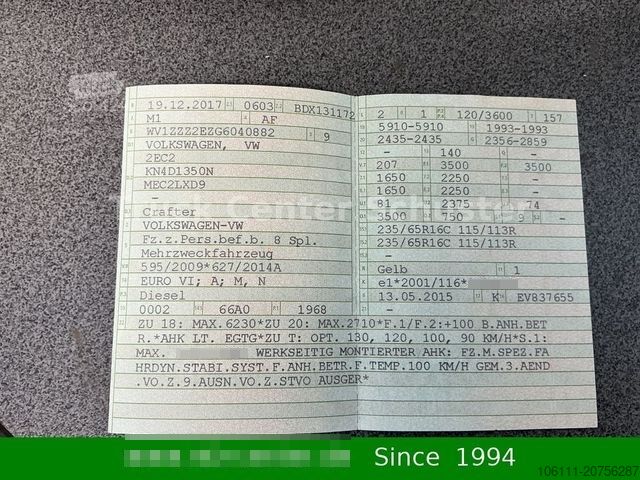 19.12.2017 0603 BDX131172
M1 AF
WV1ZZZ2EZG6040882 9
VOLKSWAGEN, VW
2EC2
KN4D1350N
MEC2LXD9
-
Crafter
VOLKSWAGEN-VW
Fz.z.Pers.bef.b. 8 Spl.
Mehrzweckfahrzeug
595/2009*627/2014A
EURO VI; A; M, N
Diesel
0002 66A0 1968
2 1 120/3600 157
5910-5910 1993-1993
2435-2435 2356-2859
- 140 -
207 3500 3500
1650 2250 -
1650 2250 -
81 2375 74
3500 750 9 -
235/65R16C 115/113R
235/65R16C 115/113R
-
Gelb 1
e1*2001/116*
13.05.2015 K EV837655
ZU 18: MAX.6230*ZU 20: MAX.2710*F.1/F.2:+100 B.ANH.BET
R.*AHK LT. EGTG*ZU T: OPT. 130, 120, 100, 90 KM/H*S.1:
MAX. WERKSEITIG MONTIERTER AHK: FZ.M.SPEZ.FA
HRDYN.STABI.SYST.F.ANH.BETR.F.TEMP.100 KM/H GEM.3.AEND
.VO.Z.9.AUSN.VO.Z.STVO AUSGER*
Since 1994
106111-20756287